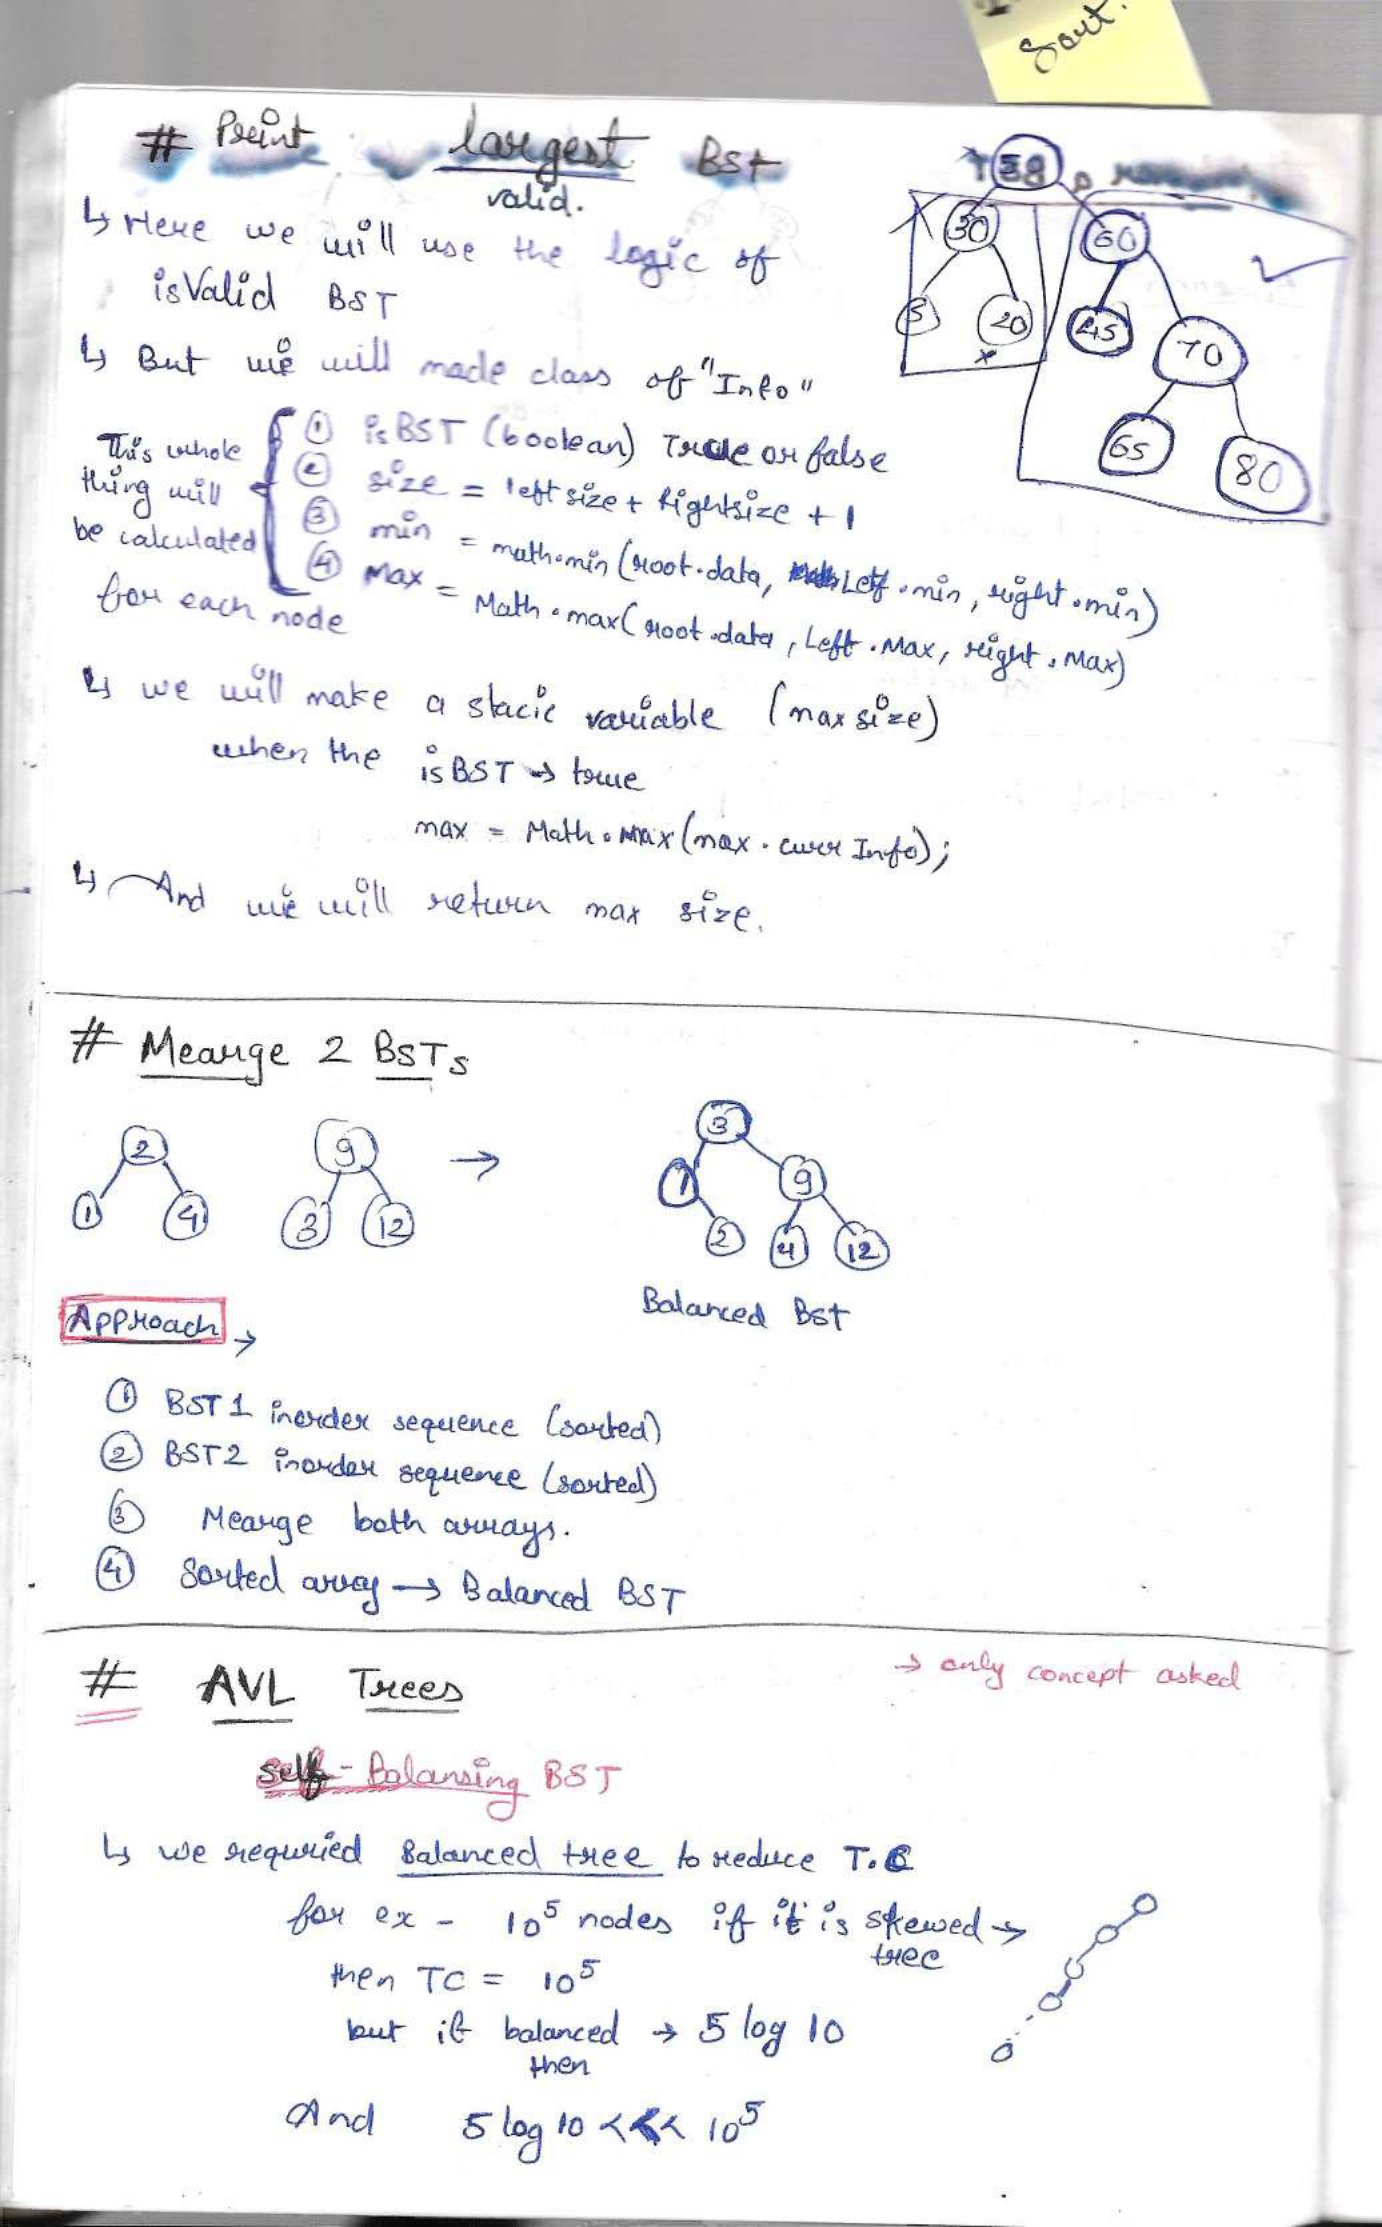 Sort.
# Print largest BSt
valid.
↳ Here we will use the logic of
isValid BST
↳ But we will made class of "Info"
This whole thing will be calculated for each node
① isBST (boolean) True or false
② size = left size + Rightsize + 1
③ min = math.min (root.data, Left.min, right.min)
④ Max = Math.max( root.data, Left.Max, right.Max)
50
30 60
5 20 45 70
65 80
↳ we will make a stacic variable (max size)
when the isBST → true
max = Math.Max (max . curr Info);
↳ And we will return max size.
# Mearge 2 BSTs
2 9 → 3
1 4 3 12 1 9
2 4 12
Balanced BSt
Approach →
① BST 1 inorder sequence (sorted)
② BST2 inorder sequence (sorted)
③ Mearge both arrays.
④ Sorted array → Balanced BST
# AVL Trees → only concept asked
self - Balansing BST
↳ we requried Balanced tree to reduce T.C
for ex - 10⁵ nodes if it is skewed →
tree
then TC = 10⁵
but if balanced → 5 log 10
then
And 5 log 10 <<< 10⁵